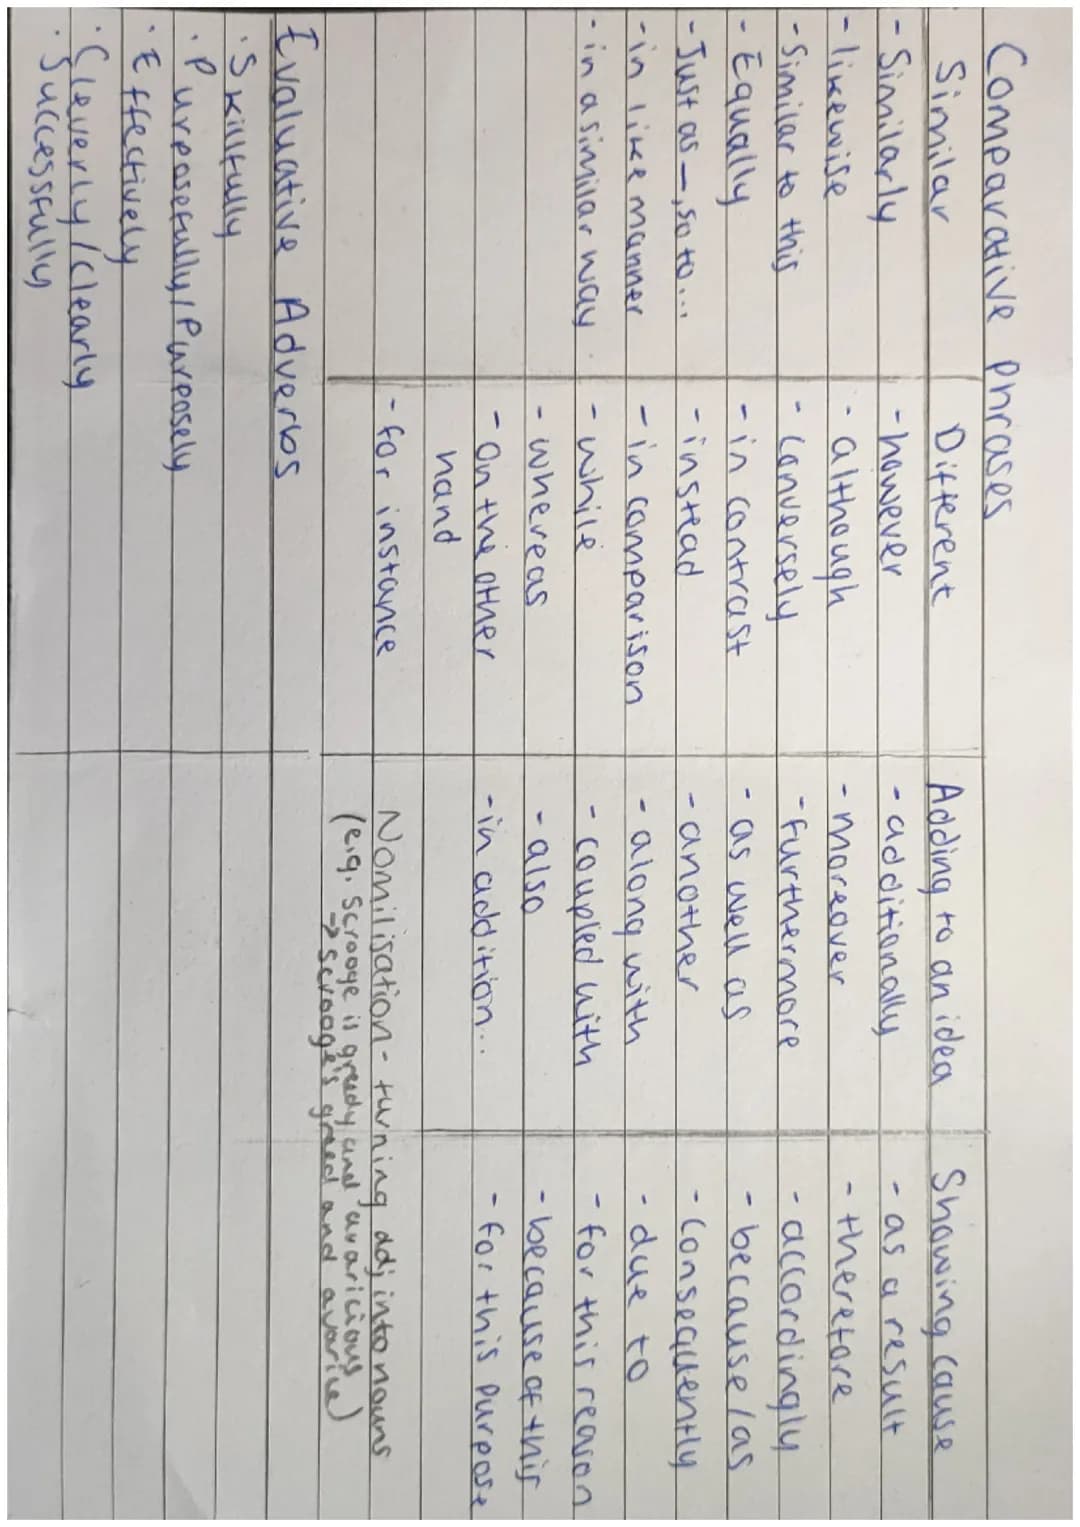 Comparative phrases
Similar
- Similarly
- likewise
- Similar to this
- Equally
- Just as —, so to...
- in like manner
- in a similar way
Different
- however
- although
- Conversely
- in contrast
- instead
- in comparison
- while
- whereas
- On the other
hand
- for instance
Adding to an idea
- additionally
- moreover
- furthermore
- as well as
- another
- along with
- coupled with
- also
- in addition...
Showing cause
- as a result
- therefore
- accordingly
- because/as
- Consequently
- due to
- for this reason
- because of this
- for this purpose
Nomilisation - turning adj into nouns
(e.g. Scrooge is greedy and avaricious
→ scrooge's greed and avarice)
Evaluative Adverbs
· Skillfully
· Purposefully/Purposely
· Effectively
· Cleverly/clearly
· Successfully